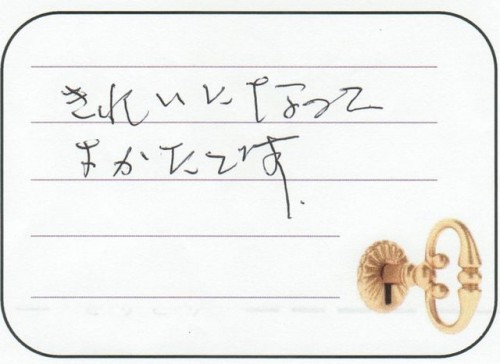 きれいになって
よかたです